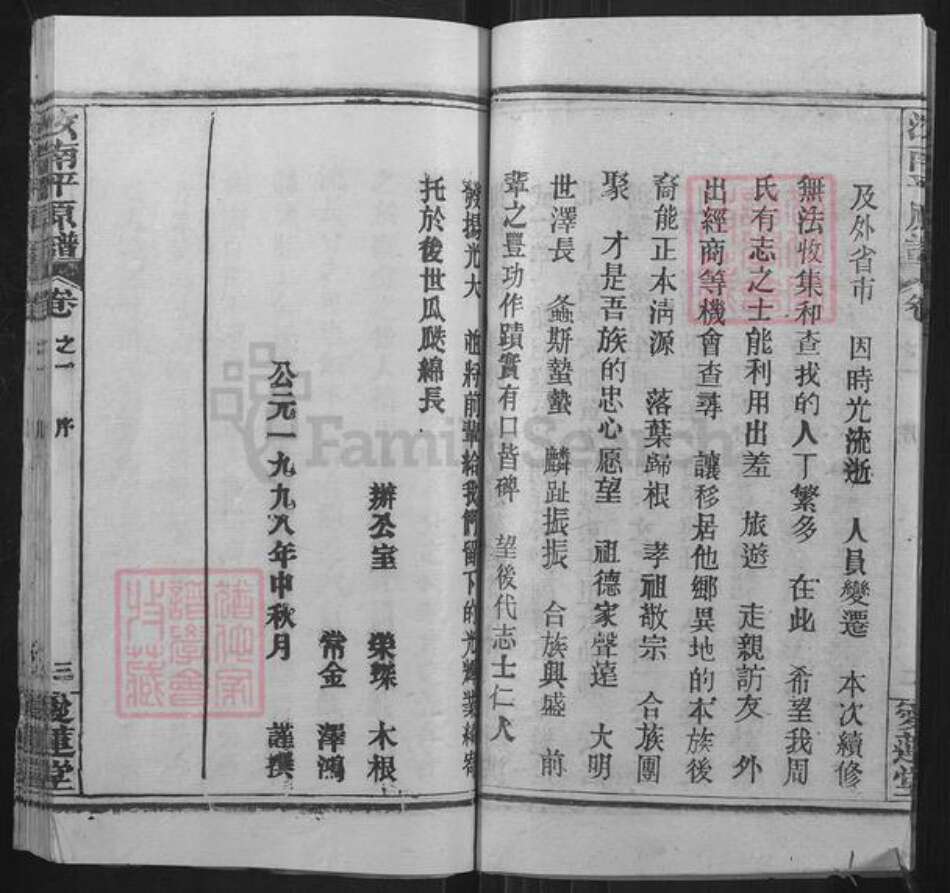 及外省市 因時光流逝 人員變遷 本次續修
無法收集和查找的人丁繁多 在此 希望我周
氏有志之士能利用出差 旅遊 走親訪友 外
出經商等機會查尋 讓移居他鄉異地的本族後
裔能正本淸源 落葉歸根 孝祖敬宗 合族團
聚 才是吾族的忠心愿望 祖德家聲遠 大明
世澤長 螽斯蟄蟄 麟趾振振 合族興盛 前
輩之豐功作蹟實有口皆碑 望後代志士仁人
發揚光大 並將前輩給我們留下的光輝業績寄
托於後世瓜瓞綿長
辦公室 榮琛 木根
常金 澤鴻
公元一九九八年中秋月 謹撰
汝南平原譜 卷之一 序 三 愛蓮堂
FamilySearch